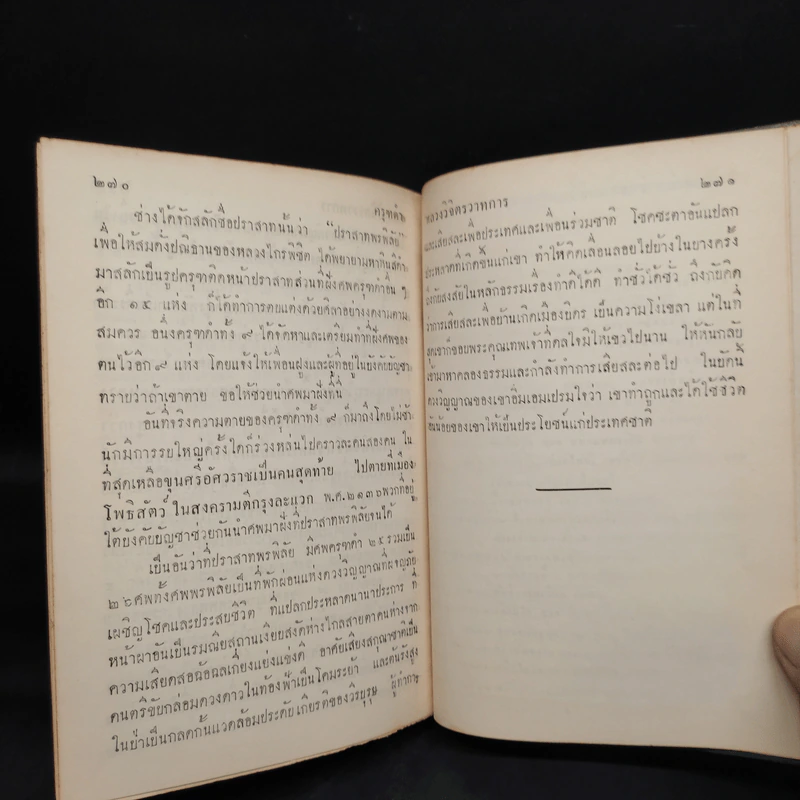 ๒๗๐
ครุฑดำ
ช่างได้จักสลักชื่อปราสาทนั้นว่า “ปราสาทพรพิลัย”
เพื่อให้สมดั่งปณิธานของหลวงไกรพิชิต ได้พยายามหาหินสีดำ
มาสลักเป็นรูปครุฑติดหน้าปราสาทส่วนที่ฝังศพครุฑดำอื่น ๆ
อีก ๑๕ แห่ง ก็ได้ทำการตบแต่งด้วยศิลาอย่างงดงามตาม
สมควร อนึ่งครุฑดำทั้ง ๙ ได้จัดหาและเตรียมทำที่ฝังศพของ
ตนไว้อีก ๙ แห่ง โดยแจ้งให้เพื่อนฝูงและผู้ที่อยู่ในบังคับบัญชา
ทราบว่าถ้าเขาตาย ขอให้ช่วยนำศพมาฝังที่นี่
อันที่จริงความตายของครุฑดำทั้ง ๙ ก็มาถึงโดยไม่ช้า
นักมีการรบใหญ่ครั้งใดก็ร่วงหล่นไปคราวละคนสองคน ใน
ที่สุดเหลือขุนศรีอัศวราชเป็นคนสุดท้าย ไปตายที่เมือง
โพธิสัตว์ ในสงครามตีกรุงละแวก พ.ศ. ๒๑๓๖ พวกที่อยู่
ใต้บังคับบัญชาช่วยกันนำศพมาฝังที่ปราสาทพรพิลัยจนได้
เป็นอันว่าที่ปราสาทพรพิลัย มีศพครุฑดำ ๒๕ รวมเป็น
๒๖ ศพทั้งศพพรพิลัยเป็นที่พักผ่อนแห่งดวงวิญญาณที่ผจญภัย
เผชิญโชคและประสบชีวิต ที่แปลกประหลาดนานาประการ ที่
หน้าผาอันเป็นรมณียสถานเงียบสงัดห่างไกลสายตาคนห่างจาก
ความเสียดสอฉ้อฉลเกี่ยงแย่งแข่งดี อาศัยเสียงสกุณชาติเป็น
ดนตรีขับกล่อมดวงดาวในท้องฟ้าเป็นโคมระย้า และต้นรังสูง
ในป่าเป็นกลดกั้นแวดล้อมประดับเกียรติของวีรบุรุษ ผู้ทำการ
หลวงวิจิตรวาทการ
๒๗๑
และเสียสละเพื่อประเทศและเพื่อนร่วมชาติ โชคชะตาอันแปลก
ประหลาดที่เกิดขึ้นแก่เขา ทำให้คิดเลื่อนลอยไปบ้างในบางครั้ง
ถึงกับสงสัยในหลักธรรมเรื่องทำดีได้ดี ทำชั่วได้ชั่ว ถึงกับคิด
ว่าการเสียสละเพื่อบ้านเกิดเมืองบิดร เป็นความโง่เขลา แต่ในที่
สุดเขาก็ขอบพระคุณเทพเจ้าที่ดลใจมิให้เขวไปนาน ให้หันกลับ
เข้ามาหาคลองธรรมและกำลังทำการเสียสละต่อไป ในบัดนี้
ดวงวิญญาณของเขาอิ่มเอมเปรมใจว่า เขาทำถูกและได้ใช้ชีวิต
อันน้อยของเขาให้เป็นประโยชน์แก่ประเทศชาติ